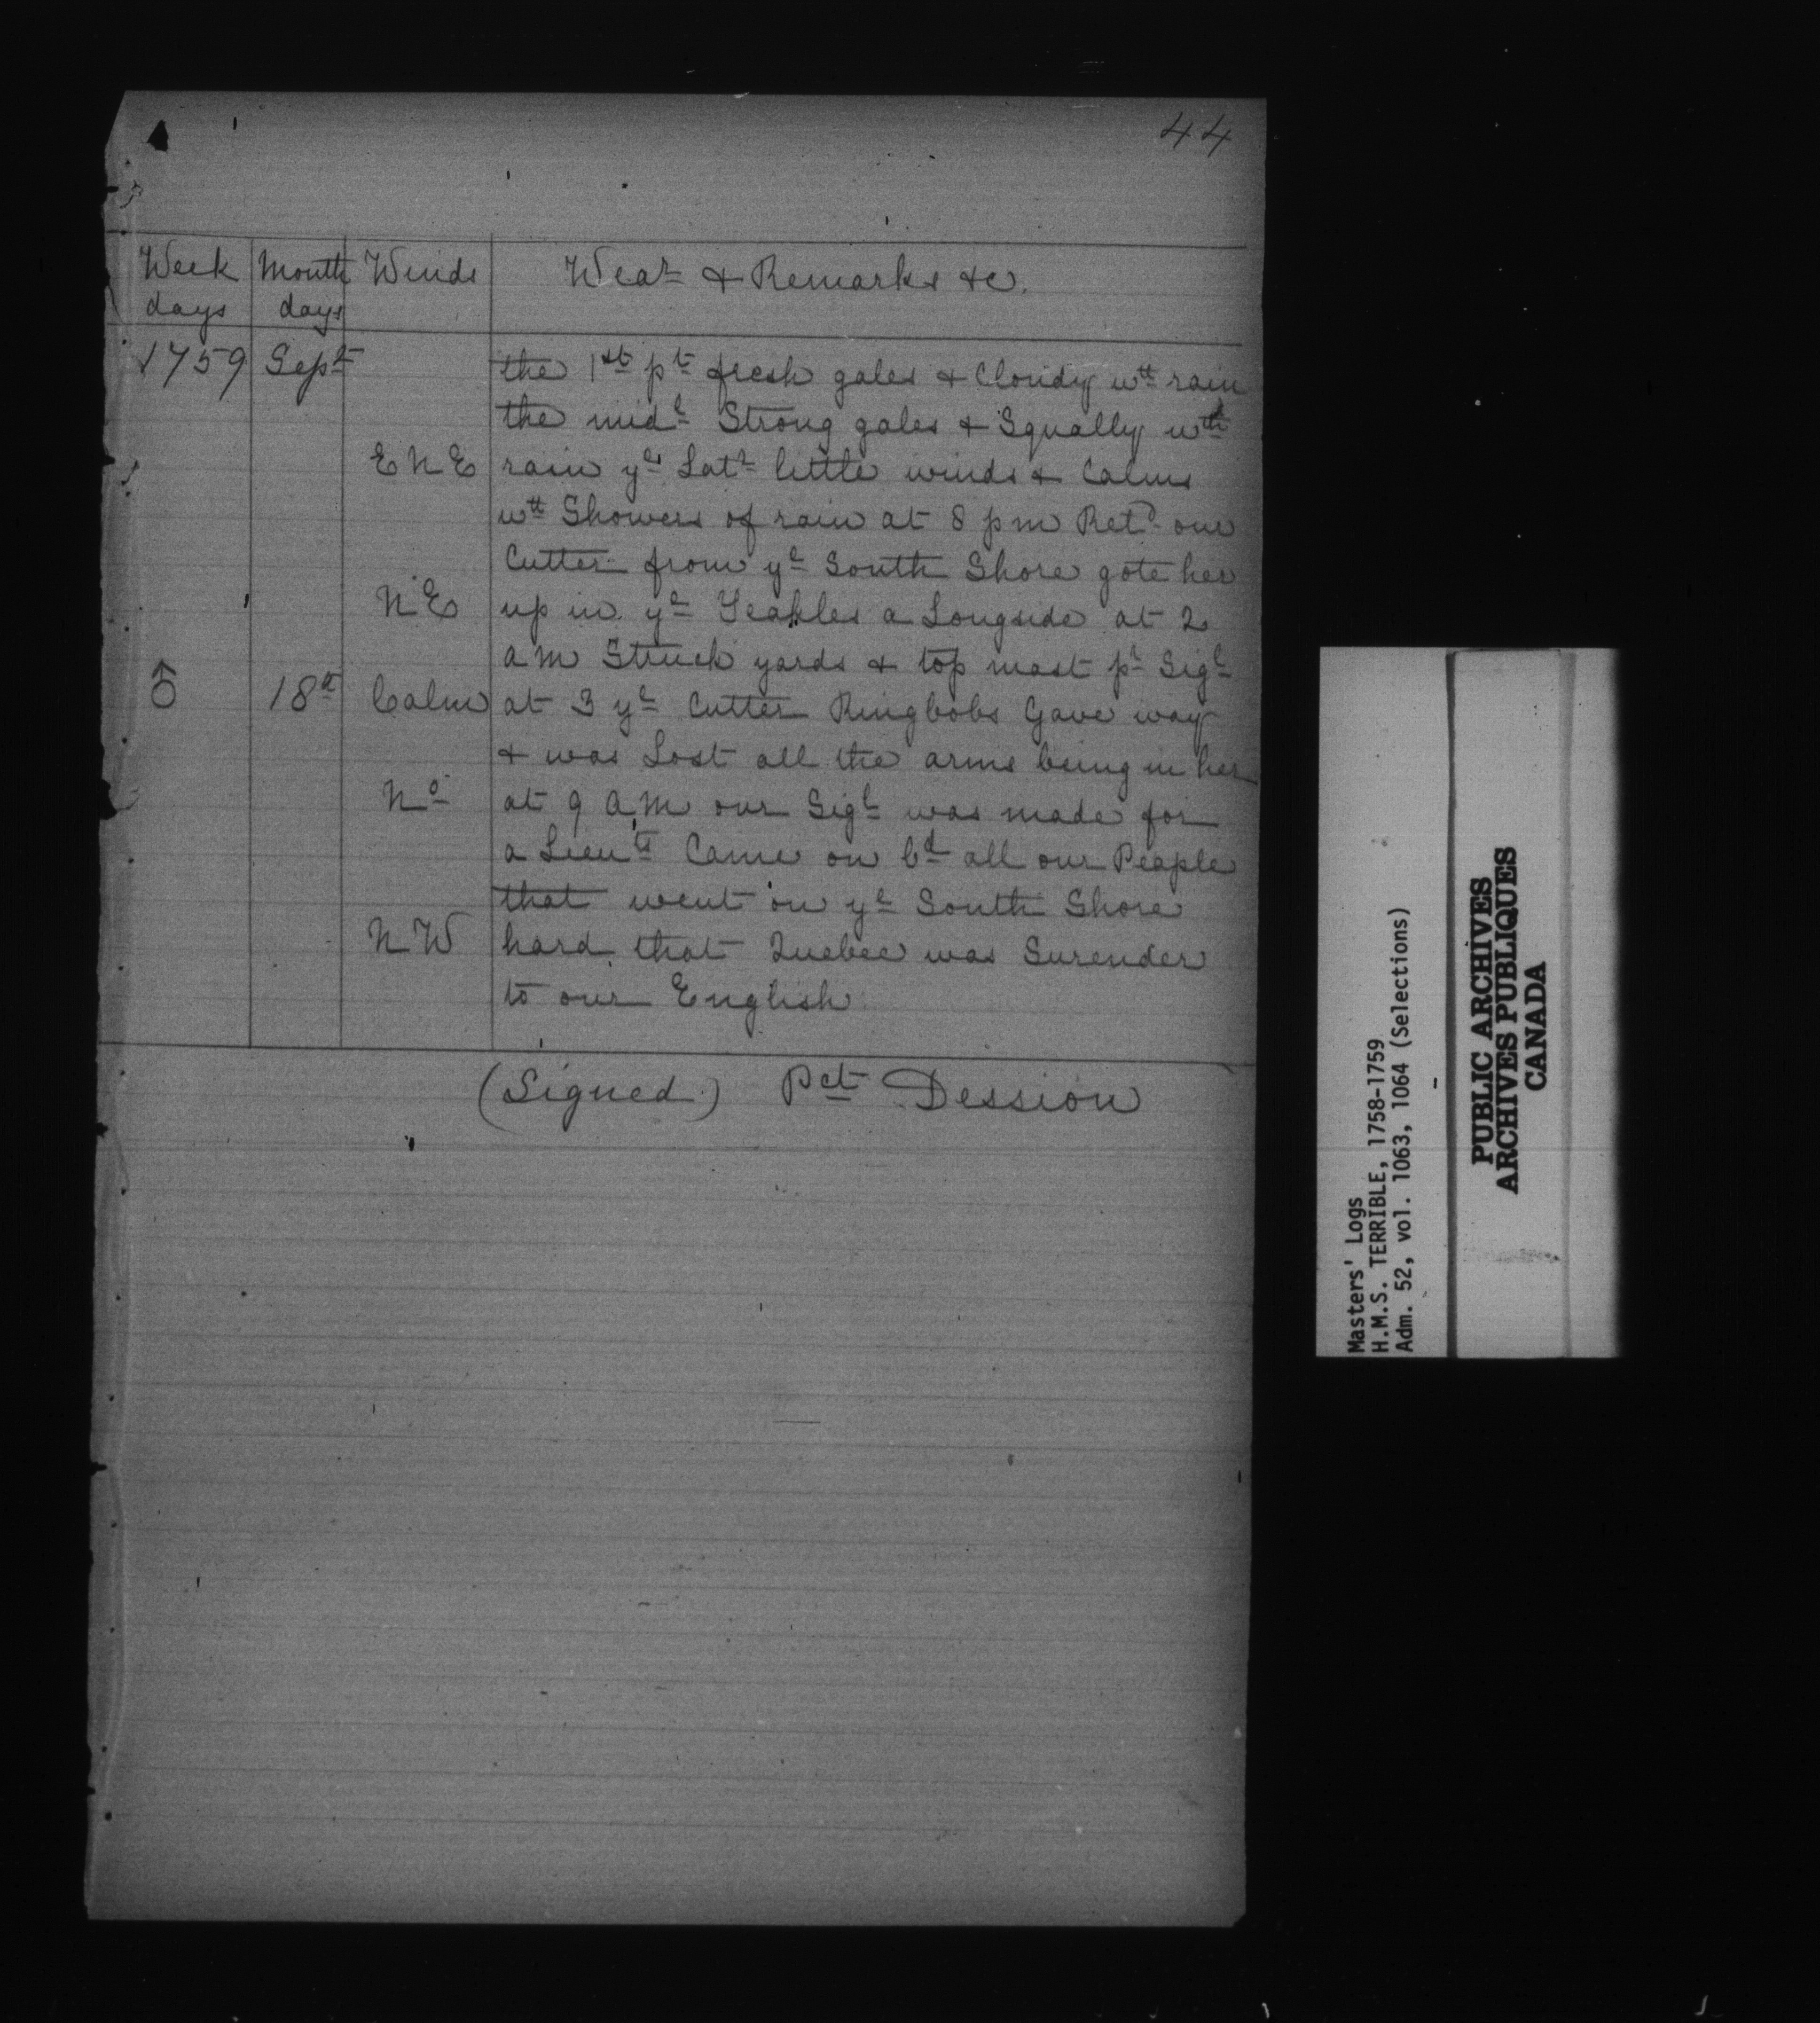 44
Week days | Month days | Winds | Wea^r & Remarks &c.
1759 | Sep^r | | the 1^st p^t fresh gales & Cloudy w^th rain
the mid^e Strong gales & Squally w^th
ENE | rain y^e Lat^r little winds & Calms
w^th Showers of rain at 8 pm Ret^d our
Cutter from y^e South Shore gote her
NE | up in y^e Teakles a Longside at 2
am Struck yards & top mast p^r Sig^l
♂ | 18^th | Calm | at 3 y^e Cutter Ringbobs Gave way
& was Lost all the arms being in her
N^o | at 9 am our Sig^l was made for
a Lieu^t Came on b^d all our Peaple
that went on y^e South Shore
NW | hard that Quebec was Surender
to our English
(Signed) Pet Dession
Masters' Logs
H.M.S. TERRIBLE, 1758-1759
Adm. 52, vol. 1063, 1064 (Selections)
PUBLIC ARCHIVES
ARCHIVES PUBLIQUES
CANADA